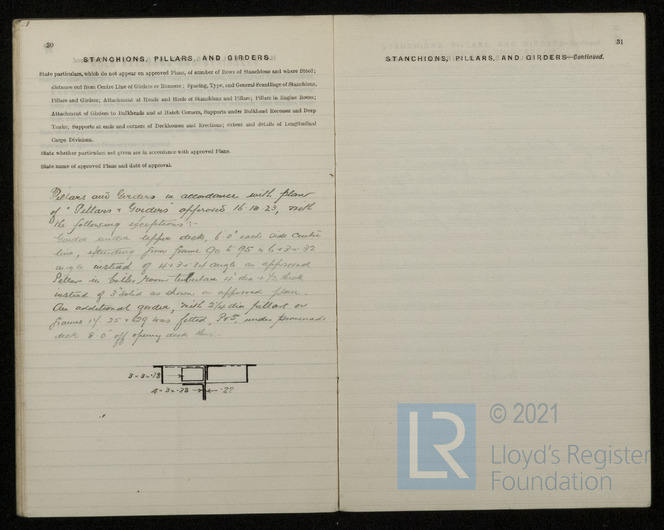 30
STANCHIONS, PILLARS, AND GIRDERS.
State particulars, which do not appear on approved Plans, of number of Rows of Stanchions and where fitted;
distance out from Centre Line of Girders or Runners; Spacing, Type, and General Scantlings of Stanchions,
Pillars and Girders; Attachment of Heads and Heels of Stanchions and Pillars; Pillars in Engine Room;
Attachment of Girders to Bulkheads and at Hatch Corners, Supports under Bulkhead Recesses and Deep
Tanks, Supports at ends and corners of Deckhouses and Erections; extent and details of Longitudinal
Cargo Divisions.
State whether particulars not given are in accordance with approved Plans.
State name of approved Plans and date of approval.
Pillars and Girders in accordance with plan
of "Pillars & Girders" approved 16.10.23, with
the following exceptions:-
Girder under upper deck, 6'0" each side centre
line, extending from frame 90 to 95 is 6 × 3 × .32
angle instead of 4 × 3 × .34 angle as approved
Pillar in boiler room tubulare 4" dia × 1/2 thick
instead of 3" solid as shown on approved plan.
An additional girder, with 2 1/4 dia pillars on
frames 14, 25 & 29 was fitted, P & S, under promenade
deck 8'0" off
3 × 3 × .28
4 × 3 × .28
.20
31
STANCHIONS, PILLARS, AND GIRDERS—Continued.
LR
© 2021
Lloyd's Register
Foundation